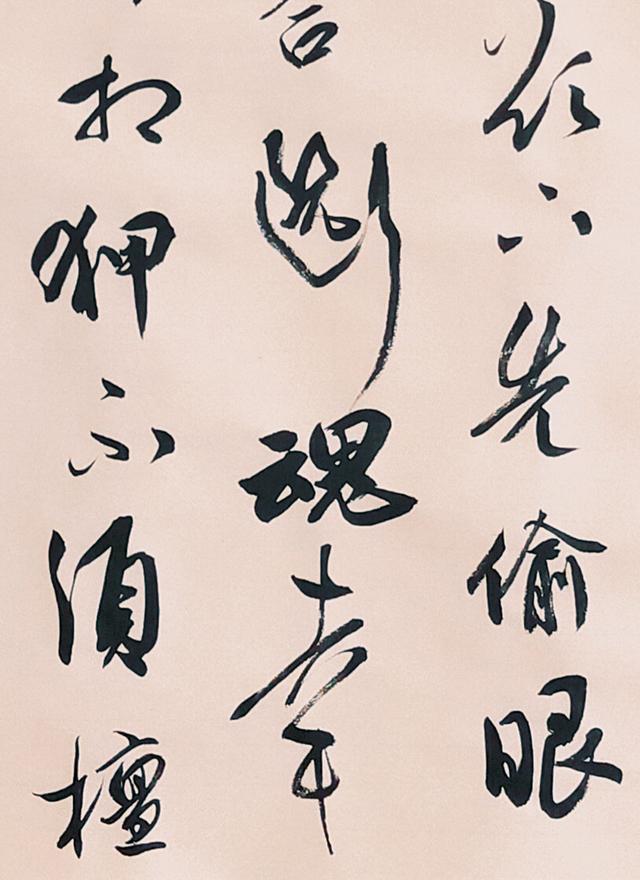 欲下先偷眼
合断魂幸
相狎不須檀